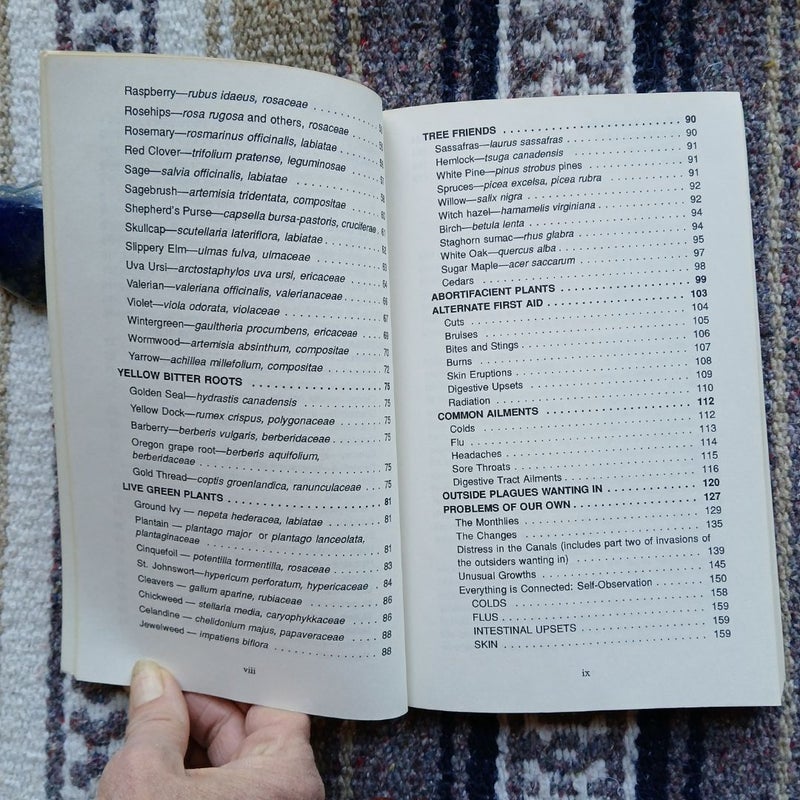 Raspberry—rubus idaeus, rosaceae
Rosehips—rosa rugosa and others, rosaceae
Rosemary—rosmarinus officinalis, labiatae
Red Clover—trifolium pratense, leguminosae
Sage—salvia officinalis, labiatae
Sagebrush—artemisia tridentata, compositae
Shepherd's Purse—capsella bursa-pastoris, cruciferae . 61
Skullcap—scutellaria lateriflora, labiatae . . . . . . . 62
Slippery Elm—ulmas fulva, ulmaceae . . . . . . . 63
Uva Ursi—arctostaphylos uva ursi, ericaceae . . . . 64
Valerian—valeriana officinalis, valerianaceae . . . . 66
Violet—viola odorata, violaceae . . . . . . . 67
Wintergreen—gaultheria procumbens, ericaceae . . . . 69
Wormwood—artemisia absinthum, compositae . . . . 70
Yarrow—achillea millefolium, compositae . . . . . . 72
YELLOW BITTER ROOTS . . . . . . . 75
Golden Seal—hydrastis canadensis . . . . . . . 75
Yellow Dock—rumex crispus, polygonaceae . . . . . 75
Barberry—berberis vulgaris, berberidaceae . . . . . . 75
Oregon grape root—berberis aquifolium,
berberidaceae . . . . . . . 75
Gold Thread—coptis groenlandica, ranunculaceae . . . 75
LIVE GREEN PLANTS . . . . . . . 81
Ground Ivy — nepeta hederacea, labiatae . . . . . . 81
Plantain — plantago major or plantago lanceolata,
plantaginaceae . . . . . . . 81
Cinquefoil — potentilla tormentilla, rosaceae . . . . . 83
St. Johnswort—hypericum perforatum, hypericaceae . . 84
Cleavers — galium aparine, rubiaceae . . . . . . 86
Chickweed — stellaria media, caryophykkaceae . . . . 86
Celandine — chelidonium majus, papaveraceae . . . . 88
Jewelweed — impatiens biflora . . . . . . . 88
viii
TREE FRIENDS . . . . . . . 90
Sassafras—laurus sassafras . . . . . . . 90
Hemlock—tsuga canadensis . . . . . . . 91
White Pine—pinus strobus pines . . . . . . . 91
Spruces—picea excelsa, picea rubra . . . . . . . 91
Willow—salix nigra . . . . . . . 92
Witch hazel—hamamelis virginiana . . . . . . . 92
Birch—betula lenta . . . . . . . 94
Staghorn sumac—rhus glabra . . . . . . . 94
White Oak—quercus alba . . . . . . . 95
Sugar Maple—acer saccarum . . . . . . . 97
Cedars . . . . . . . 98
ABORTIFACIENT PLANTS . . . . . . . 99
ALTERNATE FIRST AID . . . . . . . 103
Cuts . . . . . . . 104
Bruises . . . . . . . 105
Bites and Stings . . . . . . . 106
Burns . . . . . . . 107
Skin Eruptions . . . . . . . 108
Digestive Upsets . . . . . . . 109
Radiation . . . . . . . 110
COMMON AILMENTS . . . . . . . 112
Colds . . . . . . . 112
Flu . . . . . . . 113
Headaches . . . . . . . 114
Sore Throats . . . . . . . 115
Digestive Tract Ailments . . . . . . . 116
OUTSIDE PLAGUES WANTING IN . . . . . . . 120
PROBLEMS OF OUR OWN . . . . . . . 127
The Monthlies . . . . . . . 129
The Changes . . . . . . . 135
Distress in the Canals (includes part two of invasions of
the outsiders wanting in) . . . . . . . 139
Unusual Growths . . . . . . . 145
Everything is Connected: Self-Observation . . . . . . . 150
COLDS . . . . . . . 158
FLUS . . . . . . . 159
INTESTINAL UPSETS . . . . . . . 159
SKIN . . . . . . . 159
ix